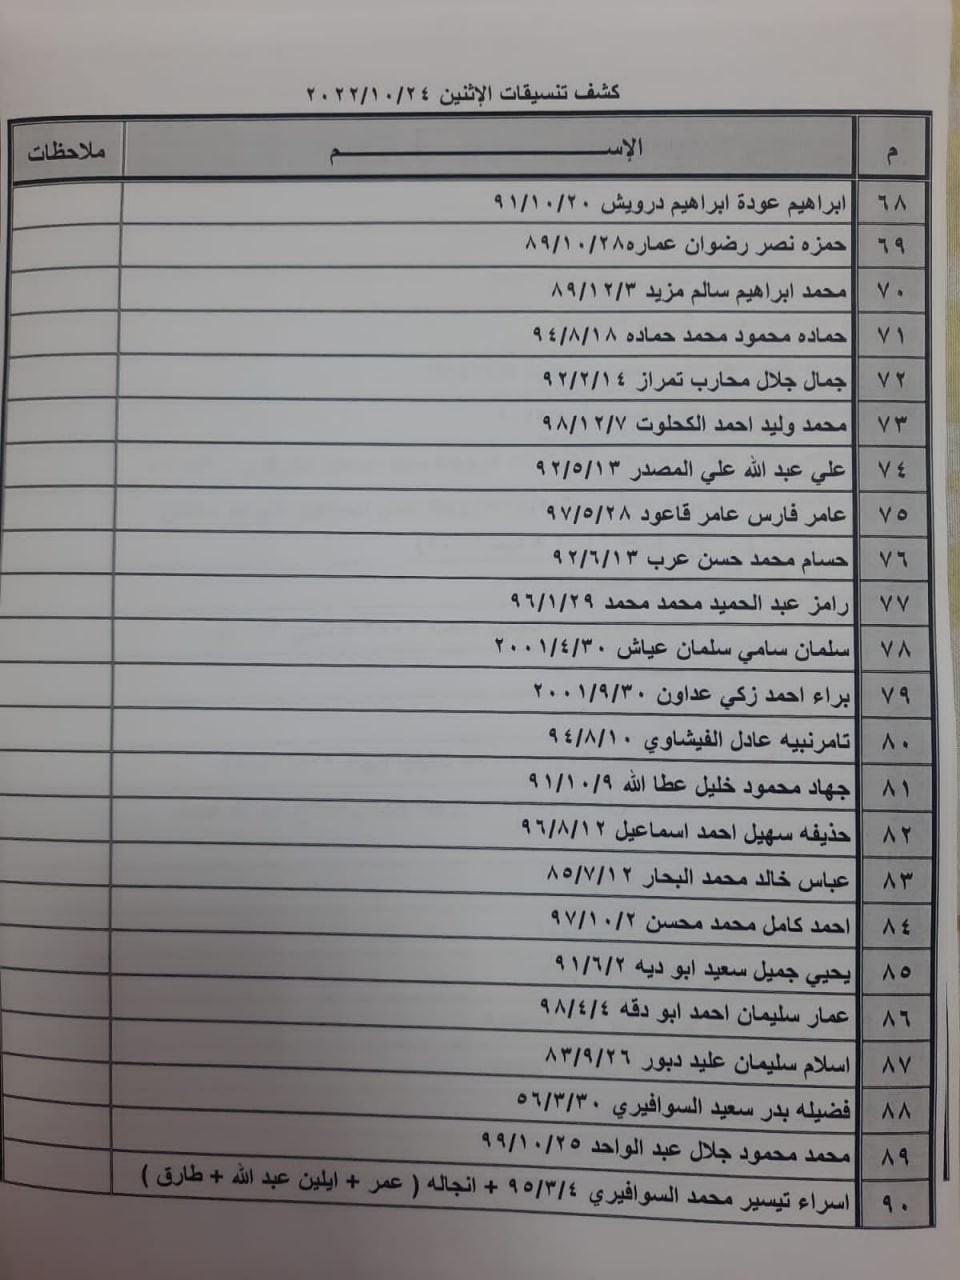 كشف تنسيقات الإثنين ٢٠٢٢/١٠/٢٤
م الإســــــــــم ملاحظات
٦٨ ابراهيم عودة ابراهيم درويش ٩١/١٠/٢٠
٦٩ حمزه نصر رضوان عماره٨٩/١٠/٢٨
٧٠ محمد ابراهيم سالم مزيد ٨٩/١٢/٣
٧١ حماده محمود محمد حماده ٩٤/٨/١٨
٧٢ جمال جلال محارب تمراز ٩٢/٢/١٤
٧٣ محمد وليد احمد الكحلوت ٩٨/١٢/٧
٧٤ علي عبد الله علي المصدر ٩٢/٥/١٣
٧٥ عامر فارس عامر قاعود ٩٧/٥/٢٨
٧٦ حسام محمد حسن عرب ٩٢/٦/١٣
٧٧ رامز عبد الحميد محمد محمد ٩٦/١/٢٩
٧٨ سلمان سامي سلمان عياش ٢٠٠١/٤/٣٠
٧٩ براء احمد زكي عداون ٢٠٠١/٩/٣٠
٨٠ تامرنبيه عادل الفيشاوي ٩٤/٨/١٠
٨١ جهاد محمود خليل عطا الله ٩١/١٠/٩
٨٢ حذيفه سهيل احمد اسماعيل ٩٦/٨/١٢
٨٣ عباس خالد محمد البحار ٨٥/٧/١٢
٨٤ احمد كامل محمد محسن ٩٧/١٠/٢
٨٥ يحيي جميل سعيد ابو ديه ٩١/٦/٢
٨٦ عمار سليمان احمد ابو دقه ٩٨/٤/٤
٨٧ اسلام سليمان عليد دبور ٨٣/٩/٢٦
٨٨ فضيله بدر سعيد السوافيري ٥٦/٣/٣٠
٨٩ محمد محمود جلال عبد الواحد ٩٩/١٠/٢٥
٩٠ اسراء تيسير محمد السوافيري ٩٥/٣/٤ + انجاله ( عمر + ايلين عبد الله + طارق )